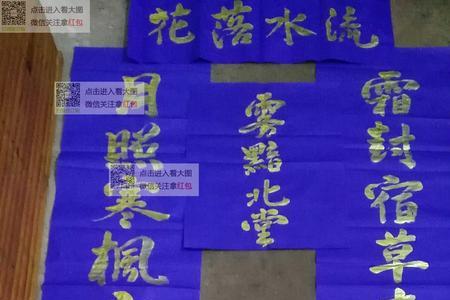 点击进入看大图
微信关注拿红包
花落水流
霜封宿草
雾黯北堂
月照寒楓
点击进入看大图
微信关注拿红包
点击进入看大图
微信关注拿红包